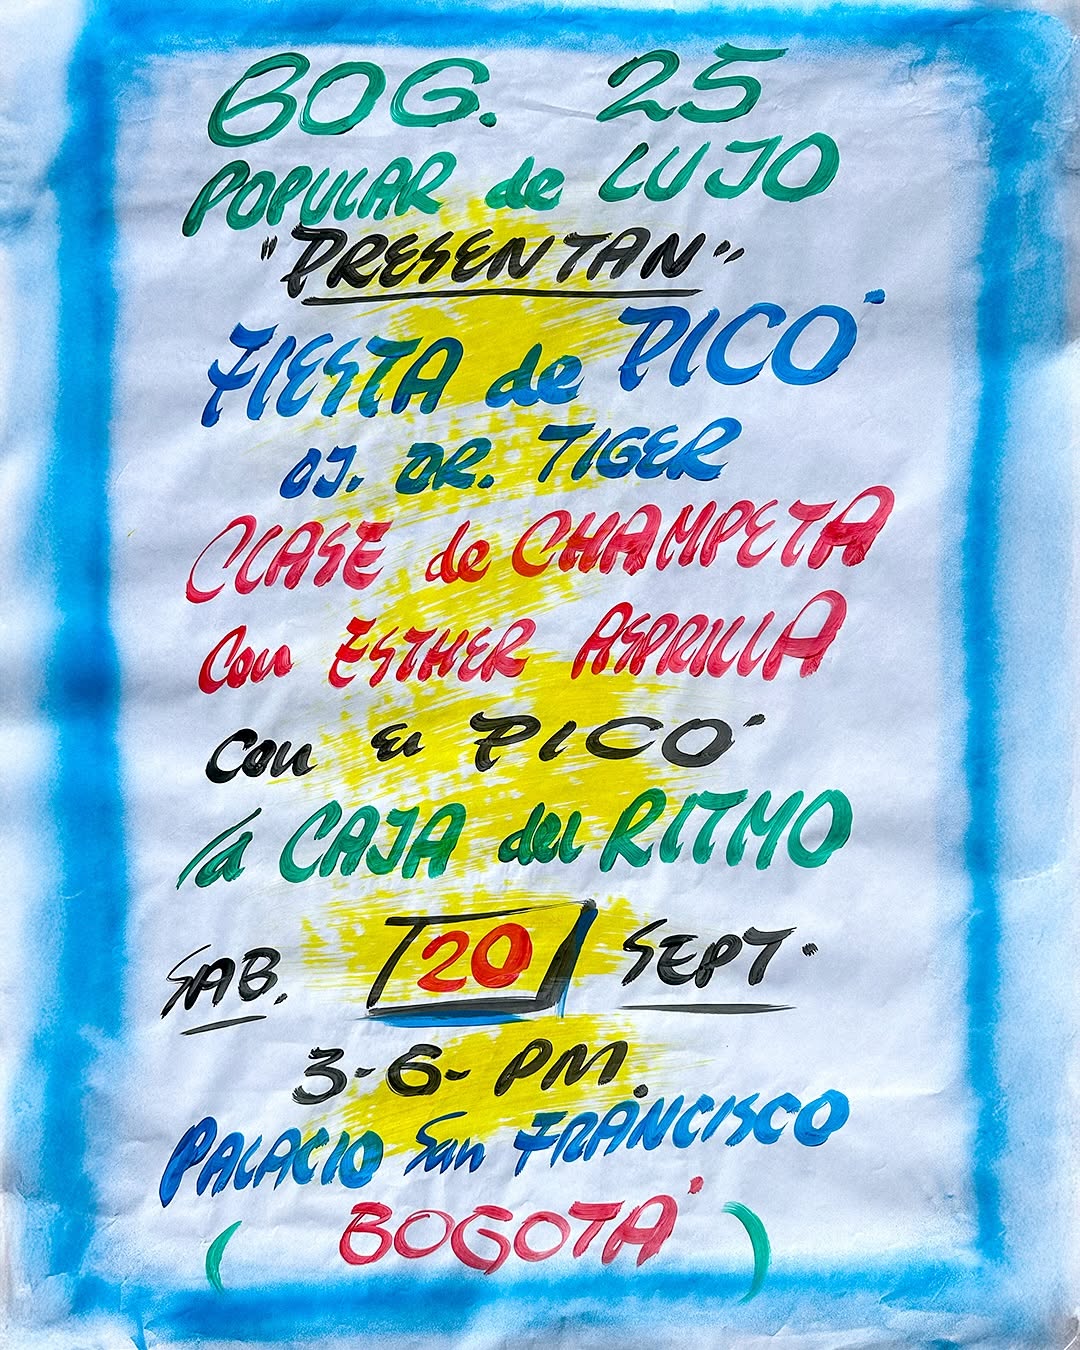 BOG. 25
POPULAR de LUJO
"PRESENTAN"
FIESTA de PICÓ
DJ. DR. TIGER
CLASE de CHAMPETA
Con ESTHER ASPRILLA
Con El PICÓ
la CAJA del RITMO
SAB. 20 SEPT.
3-6- PM.
PALACIO San FRANCISCO
(BOGOTÁ)